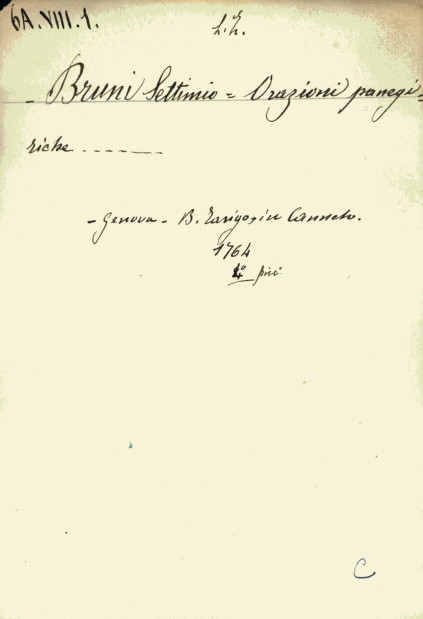 6A.VIII.1.
- Bruni Settimio = Orazioni panegi=
riche -------
- Genova - B. Tarigo, in Canneto.
1764
4° picc°
C